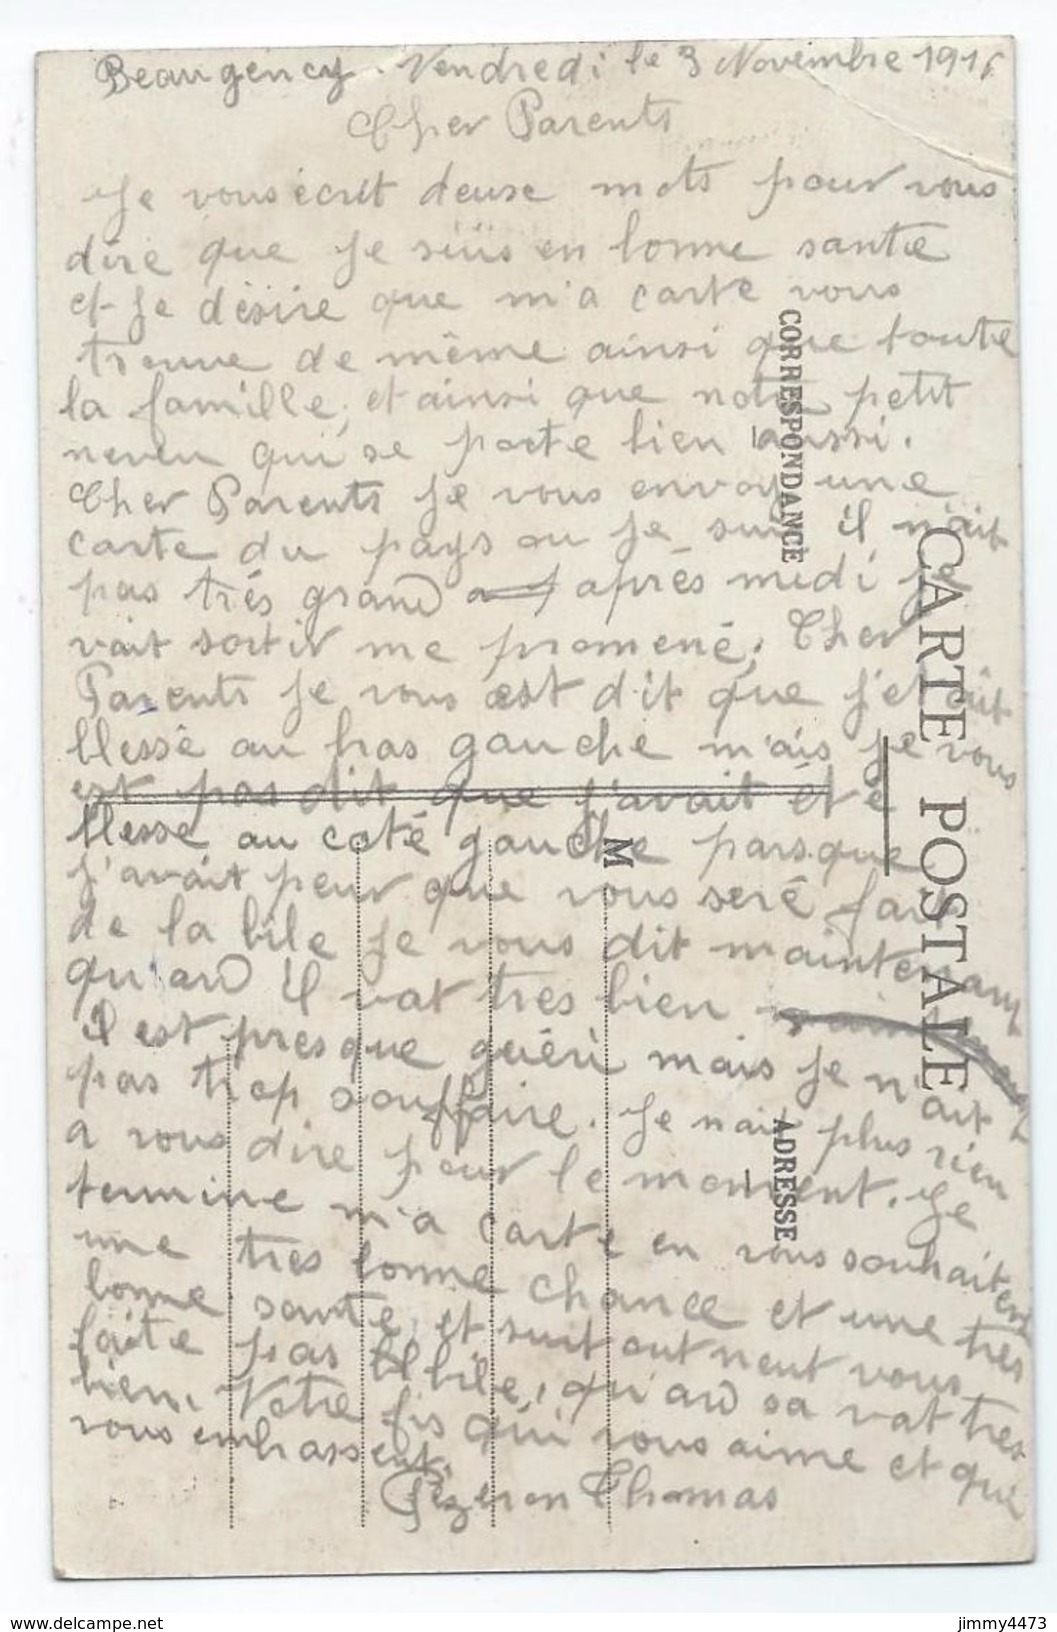 Beaugency. Vendredi le 3 Novembre 1916
Cher Parents
Je vous écrit deuse mots pour vous
dire que je suis en bonne santé
et je désire que m'a carte vous
trouve de même ainsi que toute
la famille, et ainsi que notre petit
neveu qui se porte bien aussi.
Cher Parents je vous envoye une
carte du pays ou je suis il n'ait
pas trés grand après medi je
vait sortir me promené; Cher
Parents je vous est dit que j'etait
blessé au bras gauche m'ais je vous
est pas dit que j'avait été
blesse au coté gauche parsque
j'avait peur que vous seré fair
de la bile je vous dit maintenant
qu'and il vat tres bien
il est presque guéeri mais je n'ait
pas trop souffaire. Je nait plus rien
a vous dire pour le moment. Je
termine m'a carte en vous souhaitent
une tres bonne chance et une tres
bonne sante, et surtout neut vous
faite pas bile, qu'and sa vat tres
bien. Votre fis qui vous aime et que
vous embrassent.
Pézeron Thomas
CORRESPONDANCE
CARTE POSTALE
M
ADRESSE
delcampe.net
jimmy4473